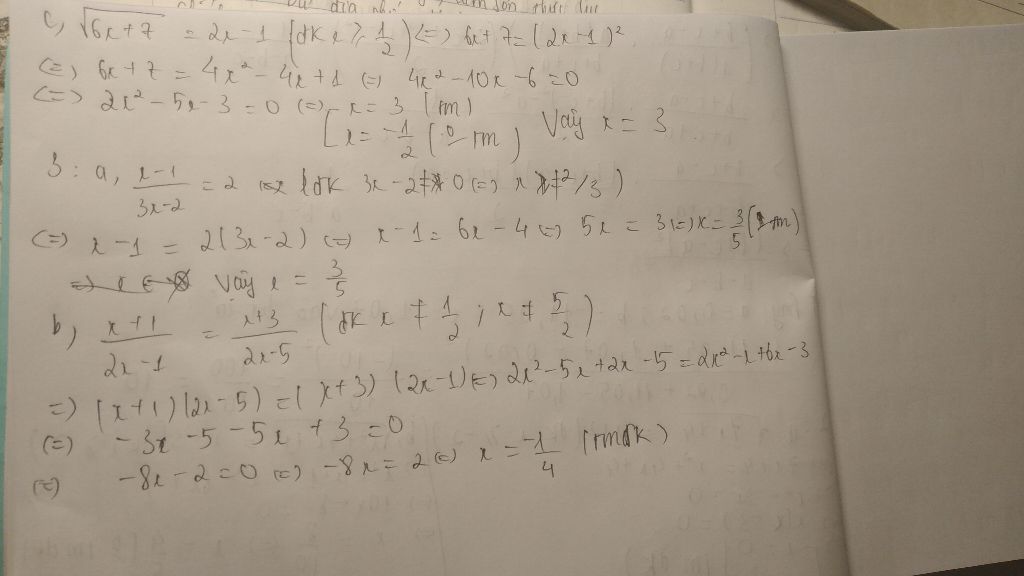 c, √6x+7 = 2x-1 (đk x ≥ 1/2) <=> 6x+7=(2x-1)²
<=> 6x+7 = 4x² - 4x+1 <=> 4x²-10x-6=0
<=> 2x²-5x-3=0 <=> [ x=3 (tm)
x=-1/2 (0 tm) Vậy x=3
3: a, x-1/3x-2 = 2 (đk 3x-2≠0 <=> x ≠2/3)
<=> x-1 = 2(3x-2) <=> x-1=6x-4 <=> 5x=3 <=> x=3/5 (tm)
Vậy x = 3/5
b, x+1/2x-1 = x+3/2x-5 (đk x ≠ 1/2 ; x ≠ 5/2)
=> (x+1)(2x-5)=(x+3)(2x-1) <=> 2x²-5x+2x-5=2x²-x+6x-3
<=> -3x-5-5x+3=0
<=> -8x-2=0 <=> -8x=2 <=> x=-1/4 (tmđk)